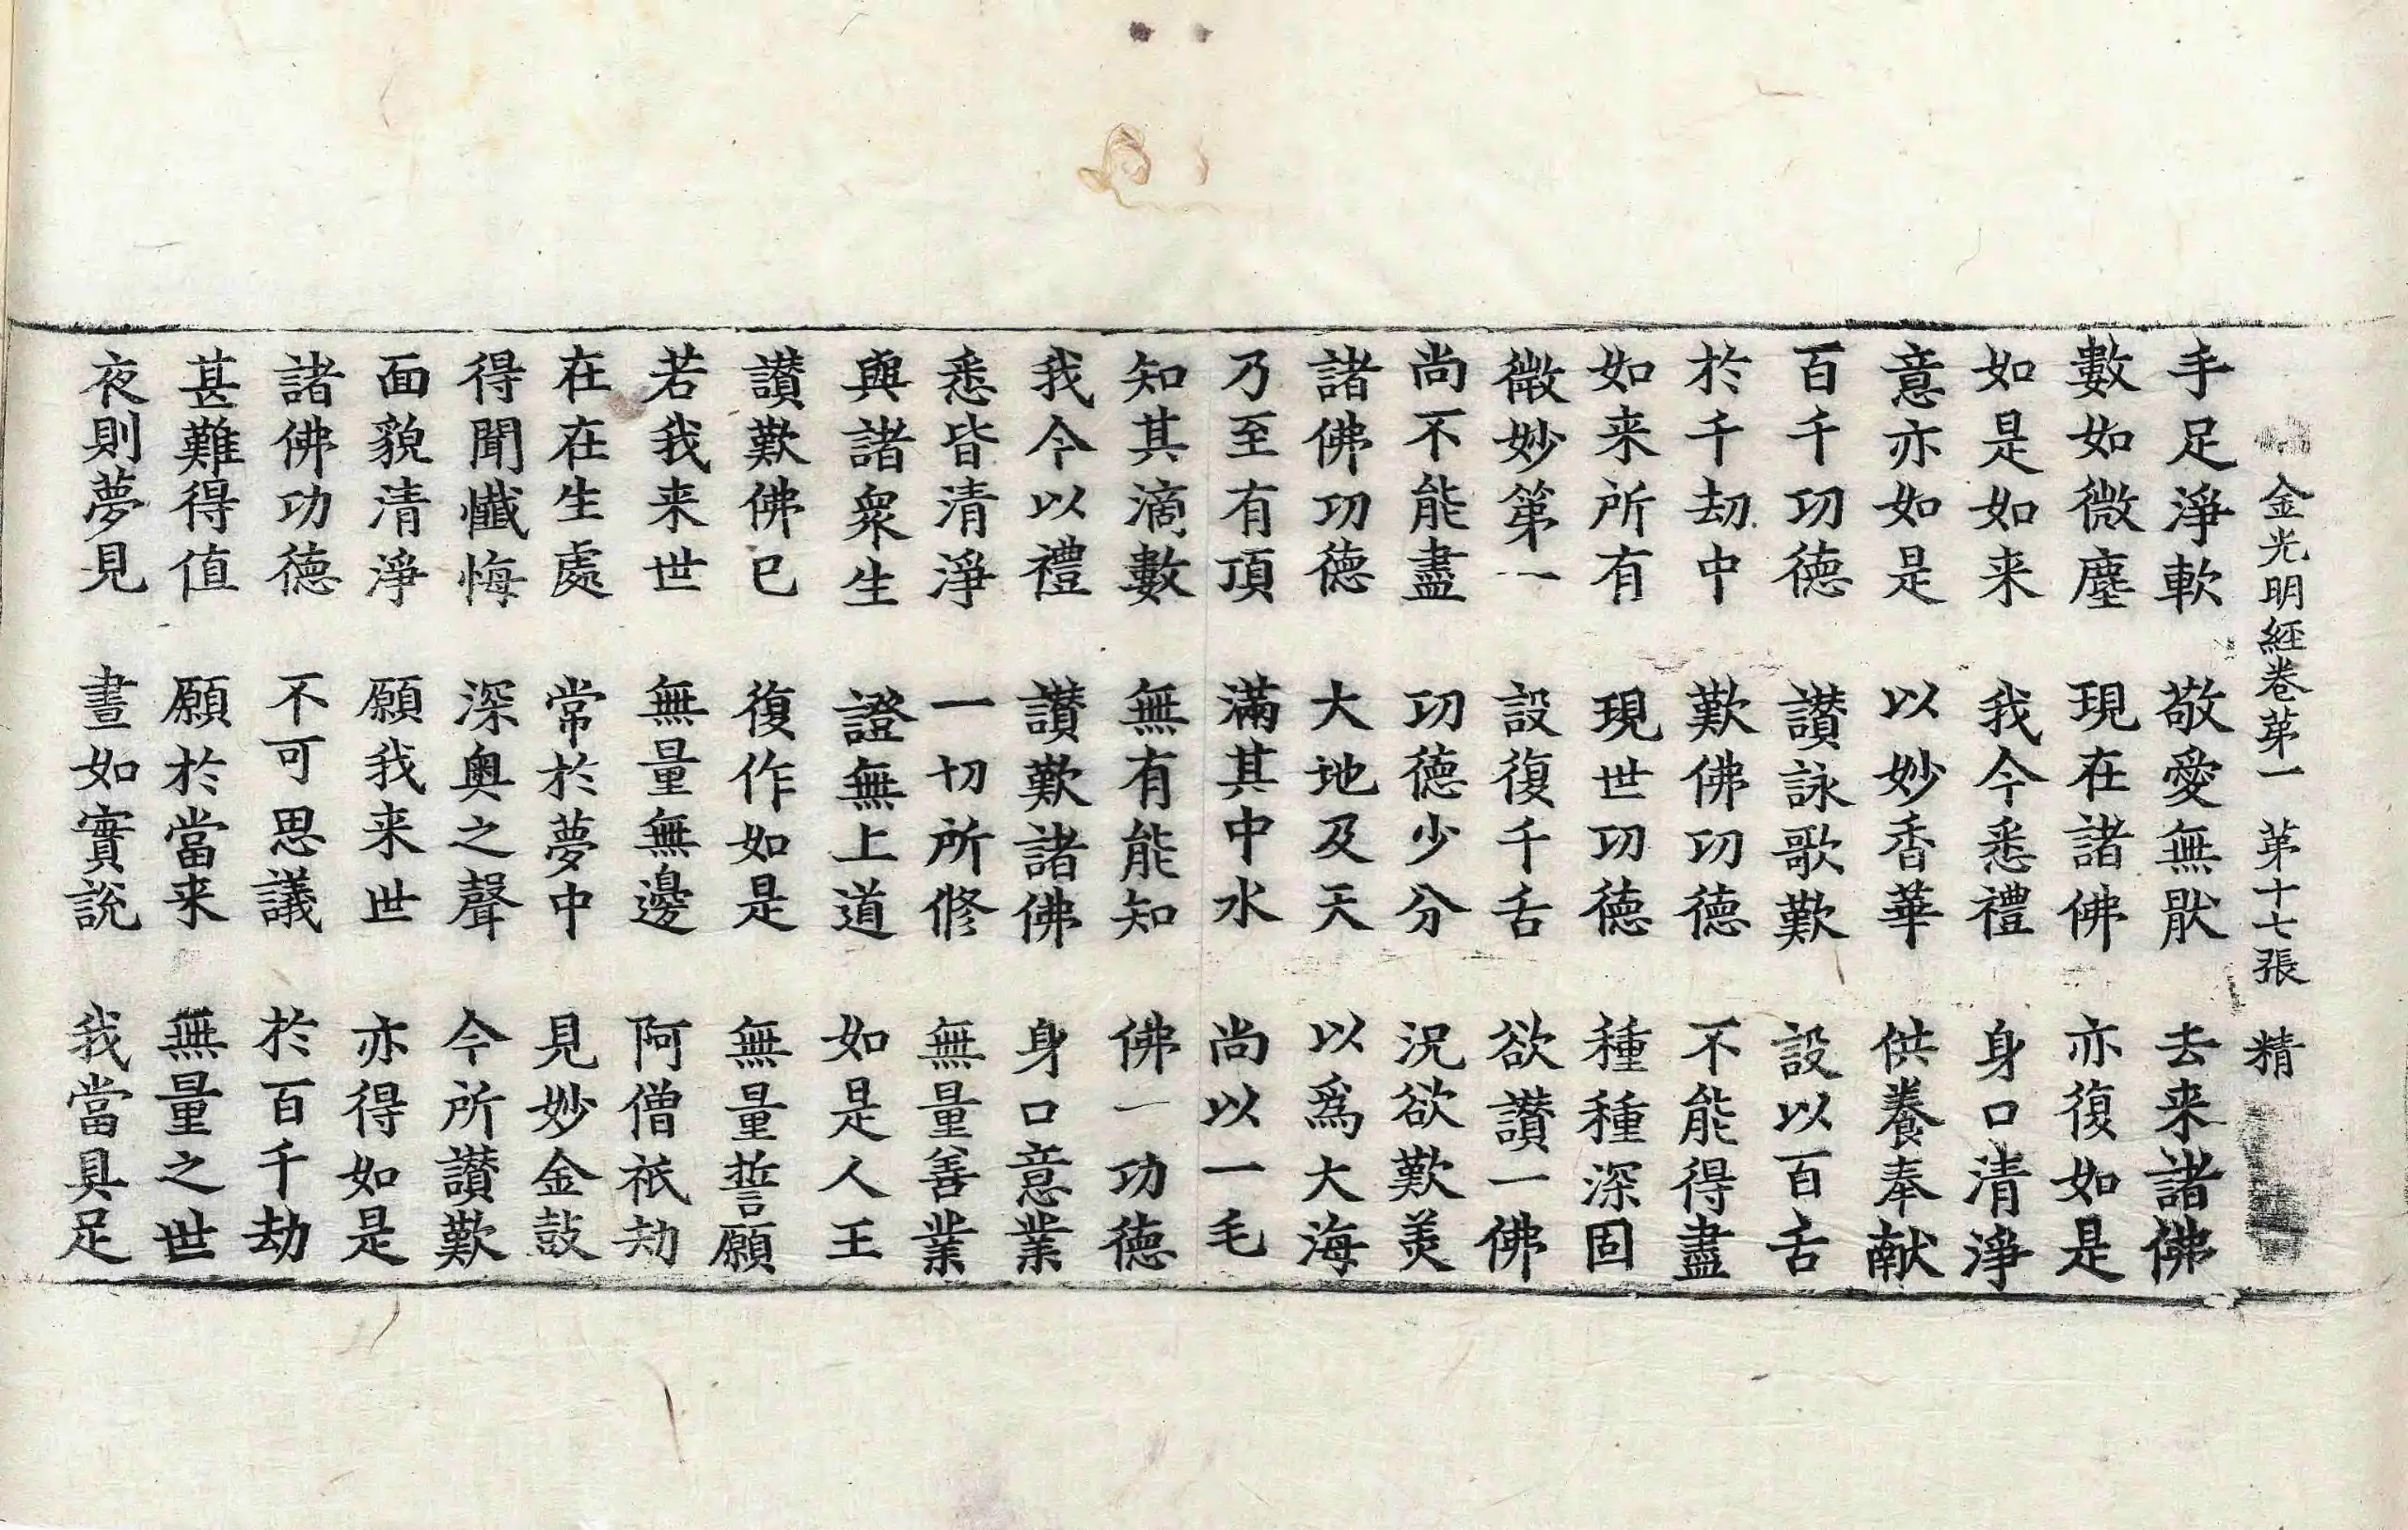 金光明經卷第一 第十七張 精
手足淨軟 敬愛無猒 去来諸佛
數如微塵 現在諸佛 亦復如是
如是如来 我今悉禮 身口清淨
意亦如是 以妙香華 供養奉献
百千功德 讃詠歌歎 設以百舌
於千劫中 歎佛功德 不能得盡
如来所有 現世功德 種種深固
微妙第一 設復千舌 欲讃一佛
尚不能盡 功德少分 況欲歎美
諸佛功德 大地及天 以爲大海
乃至有頂 滿其中水 尚以一毛
知其滴數 無有能知 佛一功德
我今以禮 讃歎諸佛 身口意業
悉皆清淨 一切所修 無量善業
與諸衆生 證無上道 如是人王
讃歎佛已 復作如是 無量誓願
若我来世 無量無邊 阿僧祇劫
在在生處 常於夢中 見妙金鼓
得聞懺悔 深奧之聲 今所讃歎
面貌清淨 願我来世 亦得如是
諸佛功德 不可思議 於百千劫
甚難得值 願於當来 無量之世
夜則夢見 晝如實說 我當具足